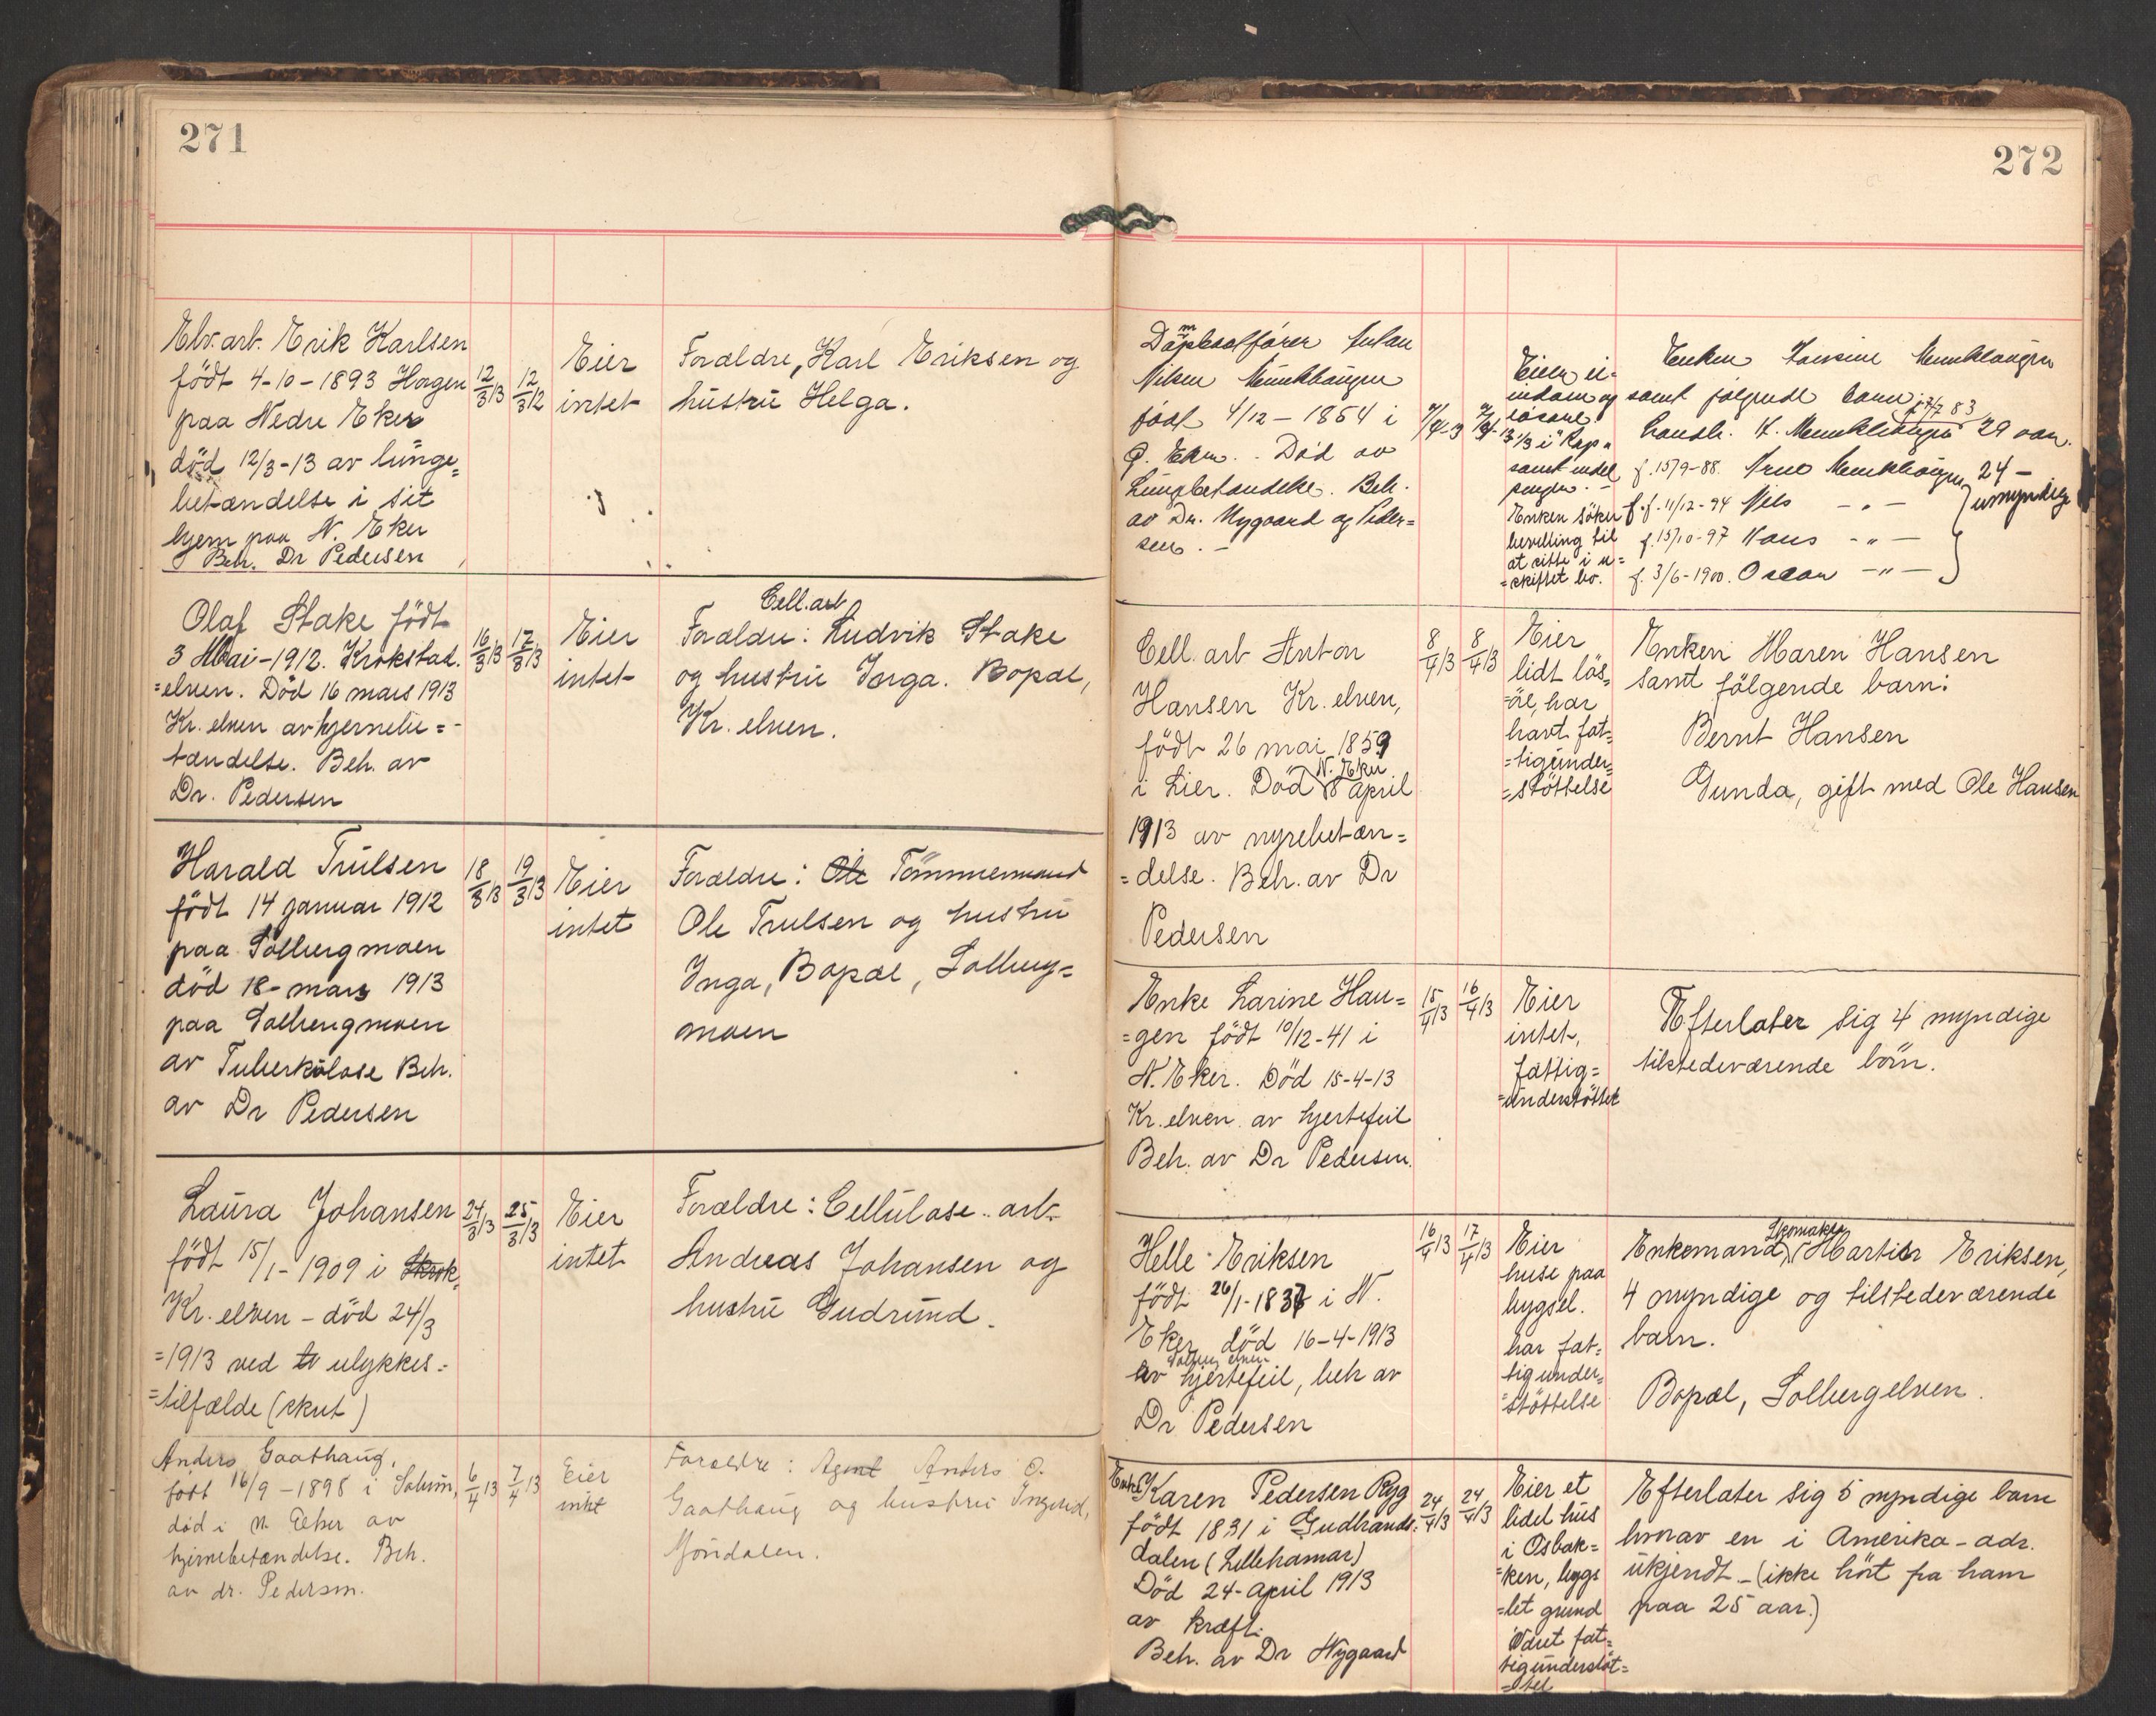 271
Elv. arb. Erik Karlsen
født 4-10-1893 Horgen
paa Nedre Eker
død 12/3-13 av lunge=
betændelse i sit
hjem paa N. Eker
Beh. Dr Pedersen
12/3 13
12/3 12
Eier
intet
Forældre, Karl Eriksen og
hustru Helga.
Olaf Stake født
3 Mai-1912. Krokstad.
=elven. Død 16 mars 1913
Kr. elven av hjernebe=
tændelse. Beh. av
Dr. Pedersen
16/3 13
17/3 13
Eier
intet
Cell. arb
Forældre: Ludvik Stake
og hustru Inga. Bopæl,
Kr. elven.
Harald Trulsen
født 14 januar 1912
paa Solbergmoen
død 18-mars 1913
paa Solbergmoen
av Tuberkulose Beh.
av Dr Pedersen
18/3 13
19/3 13
Eier
intet
Forældre: Ole Tömmermand
Ole Trulsen og hustru
Inga, Bopæl, Solberg=
moen
Laura Johansen
født 15/1-1909 i Skrok
Kr. elven - död 24/3
=1913 ved ulykkes=
=tilfælde (skut)
24/3 13
25/3 13
Eier
intet
Forældre: Cellulose.. arb.
Andreas Johansen og
hustru Gudrund.
Anders Gaathaug,
født 16/9-1898 i Solum,
død i N. Eker av
hjernebetændelse. Beh.
av dr. Pedersen.
6/4 13
7/4 13
Eier
intet
Forældre: Agent Anders O.
Gaathaug og hustru Ingerid,
Mjöndalen.
272
Dampbaatfører
Nilsen Munkhaugen
født 4/12-1854 i
Ø. Eker. Død av
Lungebetændelse. Beh.
av Dr. Nygaard og Peder=
sen.
Eier ei=
endom og
løsøre
1/3 i
samt endel
penger.
Enken söker
bevilling til
at sitte i u=
=skiftet bo.
Enken Munkhaugen
samt følgende barn
f. 7/7 83
Handli. K. Munkhaugen 29 aar.
f. 15/9-88. Arne Munkhaugen 24 -
f. 11/12-94 Nils - " -
f. 15/10-97 Hans - " -
f. 3/6-1900. Oscar - " -
umyndige
Cell. arb Anton
Hansen Kr. elven,
født 26 mai 1859
N. Eker
i Lier. Død 8 april
1913 av nyrebetæn=
=delse. Beh. av Dr
Pedersen
8/4 13
8/4 13
Eier
lidt løs=
=öre, har
havt fat=
=tigunder=
=støttelse
Enken Maren Hansen
samt følgende barn:
Bernt Hansen
Gunda, gift med Ole Hansen
Enke Larine Hau=
=gen født 10/12-41 i
N. Eker. Död 15-4-13
Kr. elven av hjertefeil
Beh. av Dr Pedersen.
15/4 13
16/4 13
Eier
intet,
fattig=
=understöttet
Efterlater sig 4 myndige
tilstedeværende börn.
Helle Eriksen
født 26/1-1837 i N.
Eker død 16-4-1913
Solberg elven
av hjertefeil, beh av
Dr Pedersen
16/4 13
17/4 13
Eier
huse paa
bygsel.
har fat=
tigunder=
=stöttelse
Skomaker
Enkemand, Martin Eriksen,
4 myndige og tilstedeværende
barn.
Bopæl, Solbergelven.
Enke Karen Pedersen Ryg
født 1831 i Gudbrands=
dalen (Lillehamar)
Död 24-april 1913
av kræft.
Beh. av Dr Nygaard
24/4 13
24/4 13
Eier et
lidet hus
i Osbak=
=ken, bygs
=let grund
Været fat=
tigunderstöt=
=tet
Efterlater sig 5 myndige barn
hvorav en i Amerika - adr.
ukjendt - (ikke hört fra ham
paa 25 aar.)